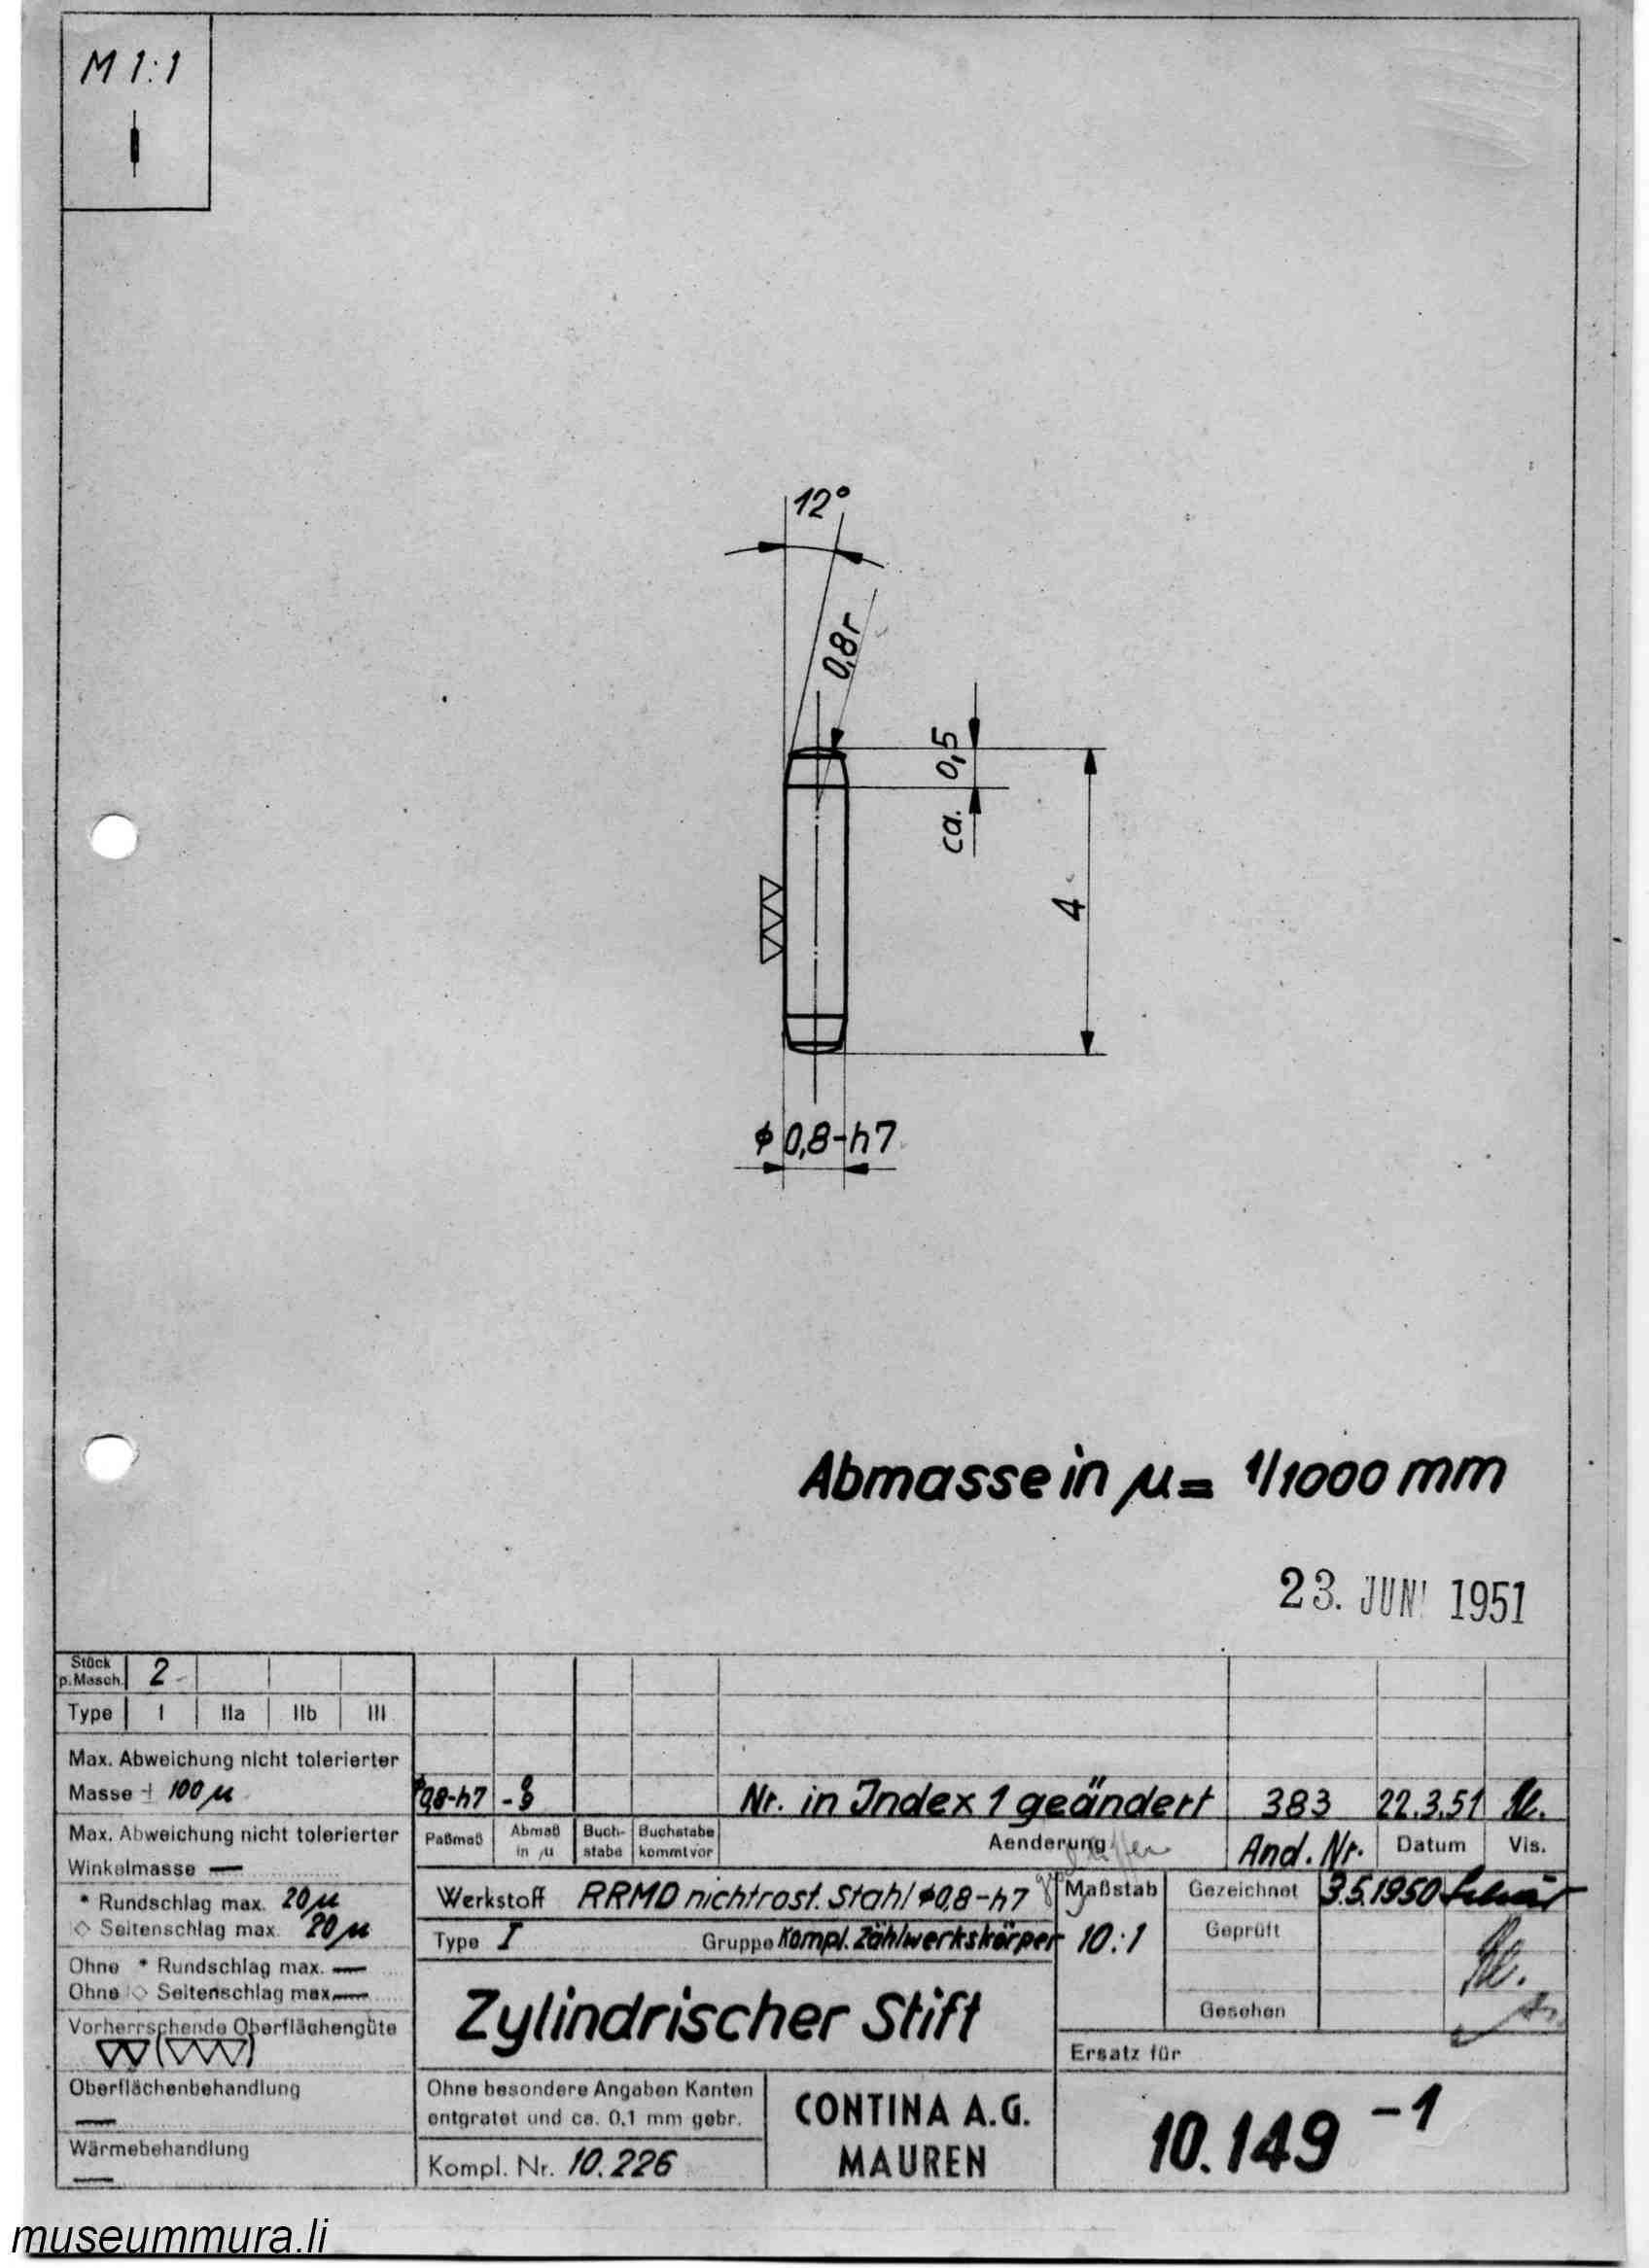 M 1:1
12°
0,8r
ca. 0,5
4
ϕ 0,8-h7
Abmasse in µ = 1/1000 mm
23. JUNI 1951
Stück
p. Masch. 2
Type I IIa IIb III
Max. Abweichung nicht tolerierter
Masse ± 100 µ
Max. Abweichung nicht tolerierter
Winkelmasse —
* Rundschlag max. 20 µ
◇ Seitenschlag max. 20 µ
Ohne * Rundschlag max. —
Ohne ◇ Seitenschlag max. —
Vorherrschende Oberflächengüte
Oberflächenbehandlung
—
Wärmebehandlung
—
ϕ 0,8-h7 Nr. in Index 1 geändert 383 22.3.51
Paßmaß Abmaß in µ Buchstabe Buchstabe kommt vor Aenderung And. Nr. Datum Vis.
Werkstoff RRMO nichtrost. Stahl ϕ 0,8-h7
Type I Gruppe Kompl. Zählwerkskörper
Maßstab
10:1
Gezeichnet 3.5.1950
Geprüft
Gesehen
Zylindrischer Stift
Ersatz für
Ohne besondere Angaben Kanten
entgratet und ca. 0.1 mm gebr.
Kompl. Nr. 10.226
CONTINA A.G.
MAUREN
10.149 -1
museummura.li